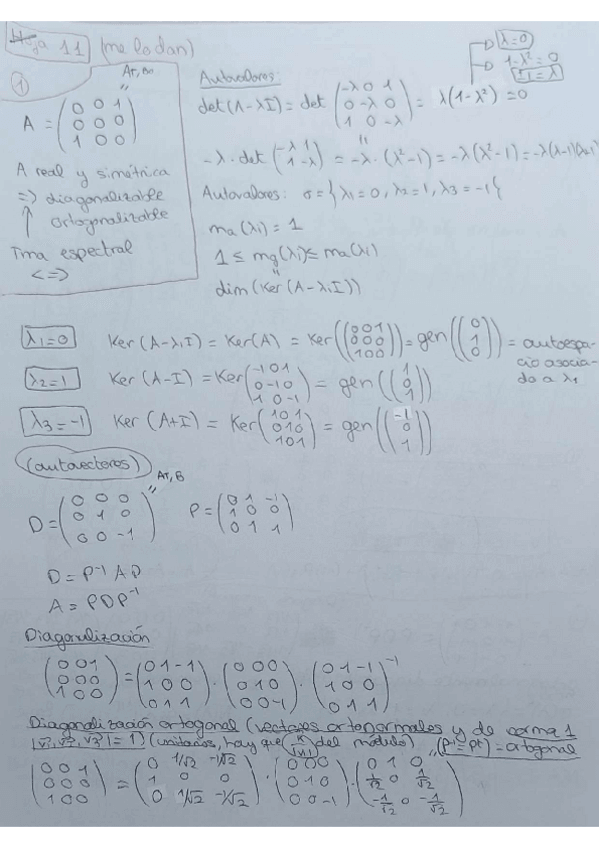 Hoja 11 (me lo dan)
①
A = (0 0 1 / 0 0 0 / 1 0 0)
A real y simétrica
=> diagonalizable
ortogonalizable
Tma espectral
<=>
Autovalores:
λ=0
1-λ²=0
|1|=λ
det(A-λI) = det (-λ 0 1 / 0 -λ 0 / 1 0 -λ) = λ(1-λ²) = 0
-λ·det(-λ 1 / 1 -λ) = -λ·(λ²-1) = -λ(λ²-1) = -λ(λ-1)(λ+1)
Autovalores: σ = {λ1=0, λ2=1, λ3=-1}
ma(λi) = 1
1 ≤ mg(λi) ≤ ma(λi)
dim(Ker(A-λiI))
λ1=0 Ker(A-λ1I) = Ker(A) = Ker((0 0 1 / 0 0 0 / 1 0 0)) = gen((0 / 1 / 0)) = autoespacio asociado a λ1
λ2=1 Ker(A-I) = Ker(-1 0 1 / 0 -1 0 / 1 0 -1) = gen((1 / 0 / 1))
λ3=-1 Ker(A+I) = Ker(1 0 1 / 0 1 0 / 1 0 1) = gen((-1 / 0 / 1))
(autovectores)
D = (0 0 0 / 0 1 0 / 0 0 -1) P = (0 1 -1 / 1 0 0 / 0 1 1)
D = P⁻¹ A P
A = P D P⁻¹
Diagonalización
(0 0 1 / 0 0 0 / 1 0 0) = (0 1 -1 / 1 0 0 / 0 1 1) · (0 0 0 / 0 1 0 / 0 0 -1) · (0 1 -1 / 1 0 0 / 0 1 1)⁻¹
Diagonalización ortogonal (vectores ortonormales y de norma 1
|v1, v2, v3| = 1) (unitarios, hay que del módulo) (P⁻¹=Pt) = ortogonal
(0 0 1 / 0 0 0 / 1 0 0) = (0 1/√2 -1/√2 / 1 0 0 / 0 1/√2 -1/√2) · (0 0 0 / 0 1 0 / 0 0 -1) · (0 1 0 / 1/√2 0 1/√2 / -1/√2 0 -1/√2)